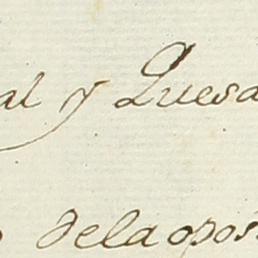 al y Quesa
delaopos